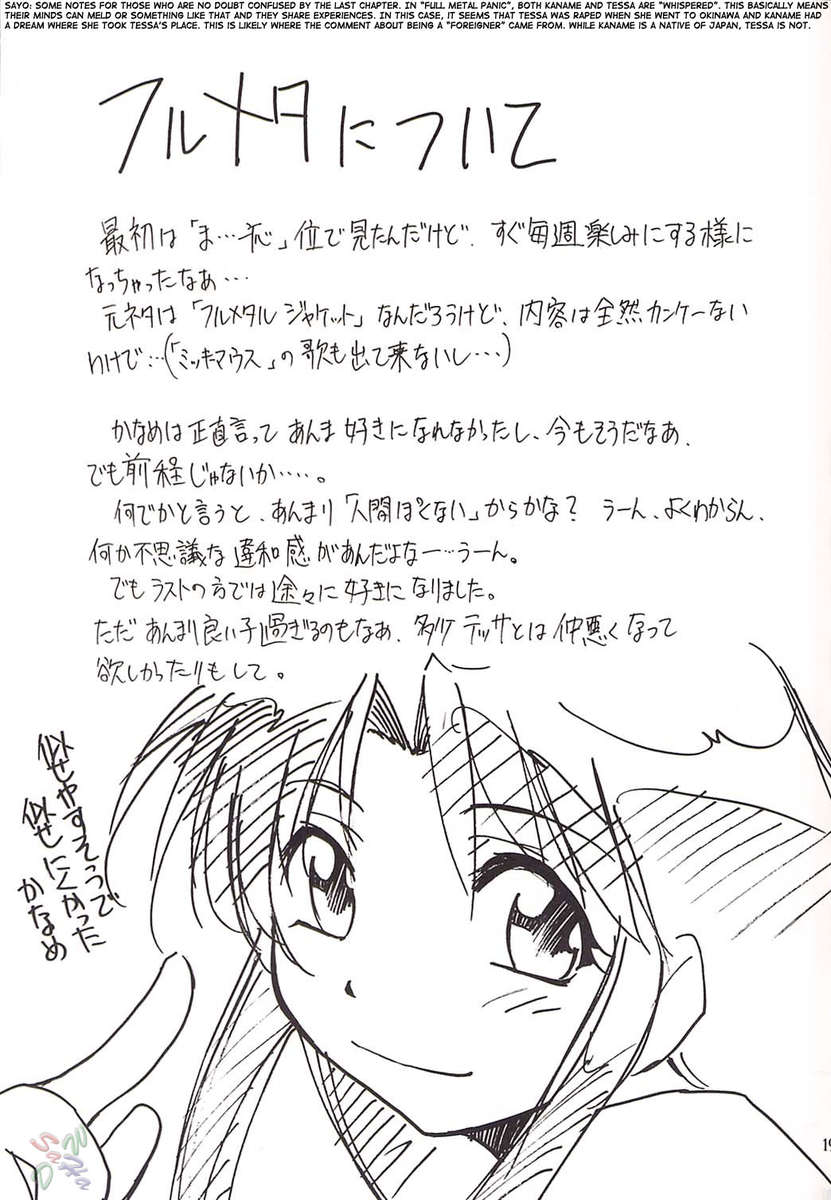 SAYO: SOME NOTES FOR THOSE WHO ARE NO DOUBT CONFUSED BY THE LAST CHAPTER. IN "FULL METAL PANIC", BOTH KANAME AND TESSA ARE "WHISPERED". THIS BASICALLY MEANS
THEIR MINDS CAN MELD OR SOMETHING LIKE THAT AND THEY SHARE EXPERIENCES. IN THIS CASE, IT SEEMS THAT TESSA WAS RAPED WHEN SHE WENT TO OKINAWA AND KANAME HAD
A DREAM WHERE SHE TOOK TESSA'S PLACE. THIS IS LIKELY WHERE THE COMMENT ABOUT BEING A "FOREIGNER" CAME FROM. WHILE KANAME IS A NATIVE OF JAPAN, TESSA IS NOT.
フルメタについて
最初は「ま…」位で見たんだけど、すぐ毎週楽しみにする様に
なっちゃったなぁ…
元ネタは「フルメタルジャケット」なんだろうけど、内容は全然カンケーない
わけで…(「ミッキーマウス」の歌も出て来ないし…)
かなめは正直言ってあんま好きになれなかったし、今もそうだなあ、
でも前程じゃないか…。
何でかと言うと、あんまり「人間ぽくない」からかな？うーん、よくわからん、
何か不思議な違和感があんだよなー…うーん。
でもラストの方では途々に好きになりました。
ただあんまり良い子過ぎるのもなあ、多少テッサとは仲悪くなって
欲しかったりもして。
似せやすそうで
似せにくかった
かなめ
19